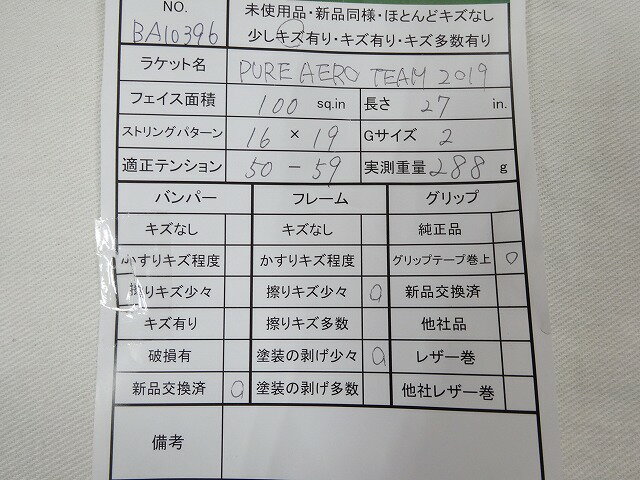 NO. 未使用品・新品同様・ほとんどキズなし
BA10396 少しキズ有り・キズ有り・キズ多数有り
ラケット名 PURE AERO TEAM 2019
フェイス面積 100 sq.in 長さ 27 in.
ストリングパターン 16 × 19 Gサイズ 2
適正テンション 50 - 59 実測重量 288 g
バンパー フレーム グリップ
キズなし キズなし 純正品
かすりキズ程度 かすりキズ程度 グリップテープ巻上 ○
擦りキズ少々 擦りキズ少々 ○ 新品交換済
キズ有り 擦りキズ多数 他社品
破損有 塗装の剥げ少々 ○ レザー巻
新品交換済 ○ 塗装の剥げ多数 他社レザー巻
備考